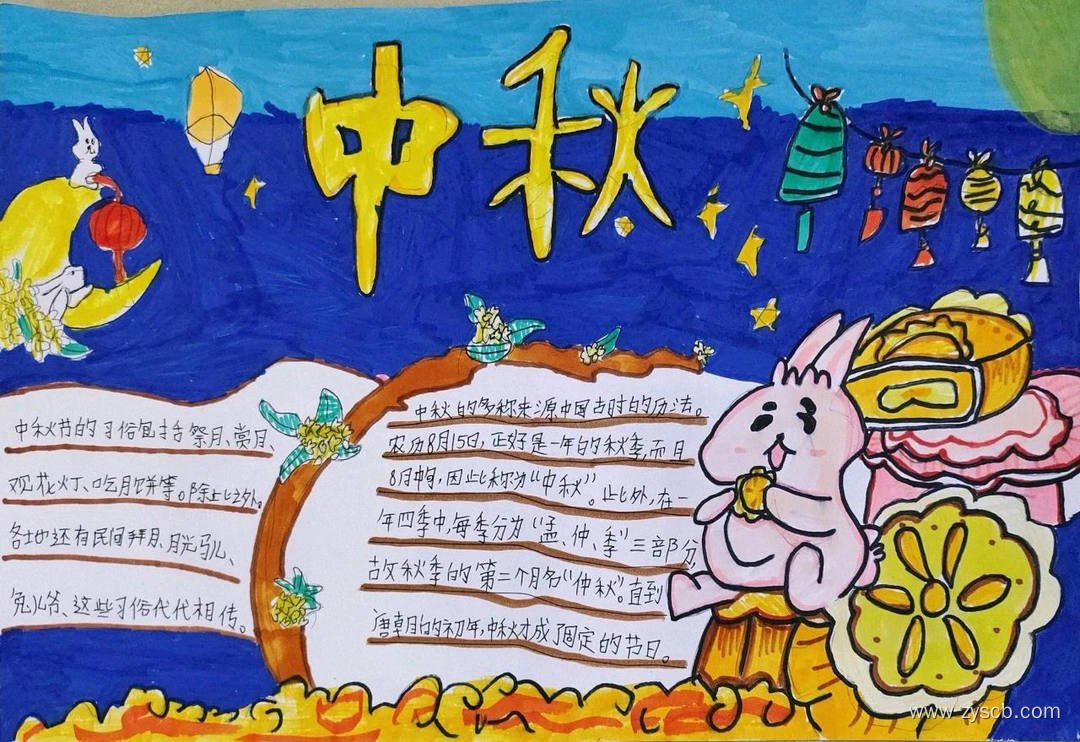 中秋
中秋节的习俗包括祭月、赏月、
观花灯、吃月饼等。除此之外。
各地还有民间拜月、月光马儿、
兔儿爷、这些习俗代代相传。
中秋的名称来源中国古时的历法。
农历8月15日,正好是一年的秋季,而且
8月中旬,因此称为“中秋”。此外,在一
年四季中,每季分为“孟、仲、季”三部分,
故秋季的第二个月名“仲秋”。直到
唐朝的初年,中秋才成了固定的节日。
www.zyscb.com